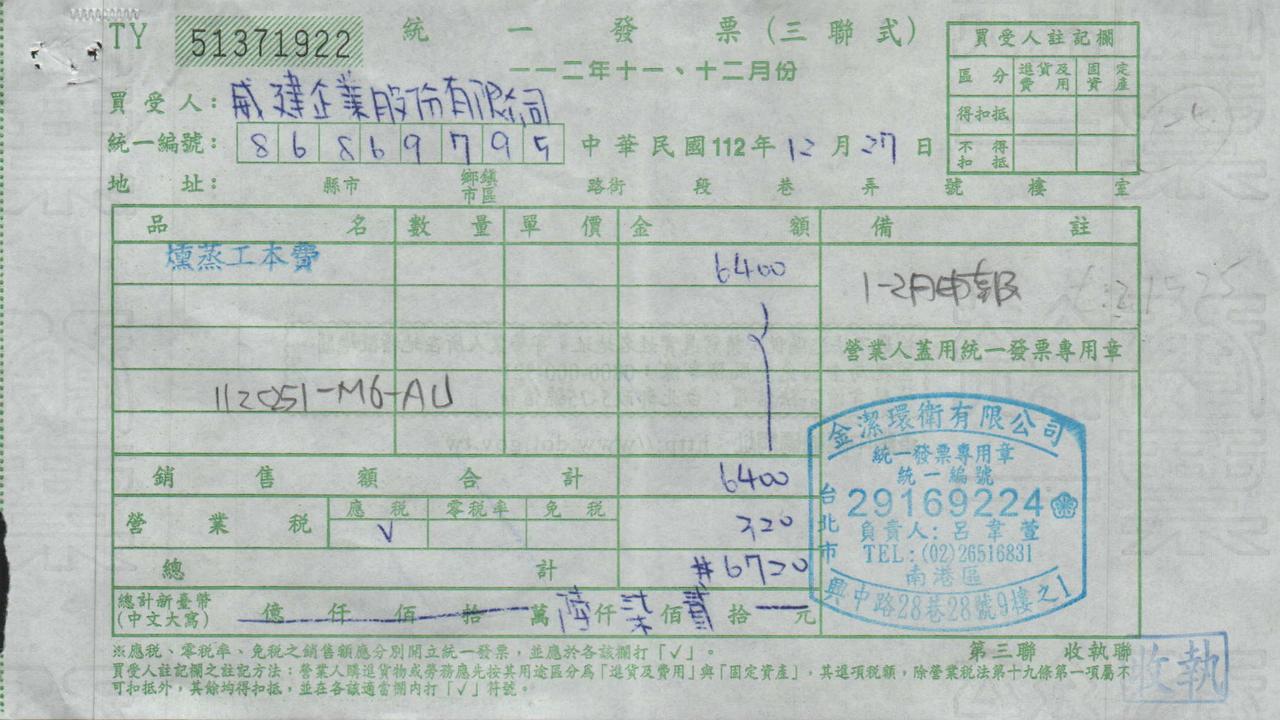 TY 51371922 統一發票(三聯式)
一一二年十一、十二月份
買受人註記欄
區分 進貨及費用 固定資產
得扣抵
不得扣抵
買受人: 威建企業股份有限公司
統一編號: 86869795 中華民國112年12月27日
地址: 縣市 鄉鎮市區 路街 段 巷 弄 號 樓 室
品名 數量 單價 金額 備註
燻蒸工本費 6400
1-2月申報
營業人蓋用統一發票專用章
112051-M6-AU
銷售額合計 6400
營業稅 應稅 零稅率 免稅 320
V
總計 #6720
總計新臺幣(中文大寫) 億 仟 佰 拾 萬 陸仟 柒佰 貳拾 元
金潔環衛有限公司
統一發票專用章
統一編號
29169224
負責人:呂韋萱
TEL:(02)26516831
台北市南港區
興中路28巷28號9樓之1
※應稅、零稅率、免稅之銷售額應分別開立統一發票,並應於各該欄打「√」。
第三聯 收執聯
買受人註記欄之註記方法:營業人購進貨物或勞務應先按其用途區分為「進貨及費用」與「固定資產」,其進項稅額,除營業稅法第十九條第一項屬不
可扣抵外,其餘均得扣抵,並在各該適當欄內打「√」符號。
收執